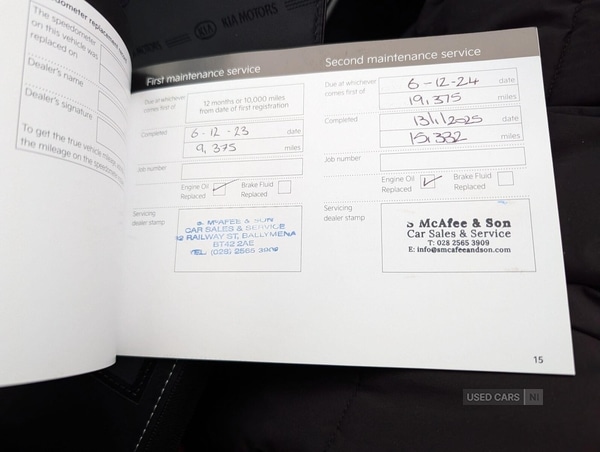 The speedometer
on this vehicle was
replaced on
Dealer's name
Dealer's signature
To get the true vehicle
the mileage on the
KIA MOTORS
First maintenance service
Due at whichever
comes first of
12 months or 10,000 miles
from date of first registration
Completed
6-12-23 date
9,375 miles
Job number
Engine Oil
Replaced
Brake Fluid
Replaced
Servicing
dealer stamp
S. McAFEE & SON
CAR SALES & SERVICE
RAILWAY ST, BALLYMENA
BT42 2AE
TEL (028) 2565 3909
Second maintenance service
Due at whichever
comes first of
6-12-24 date
19,375 miles
Completed
13/1/2025 date
15,332 miles
Job number
Engine Oil
Replaced
Brake Fluid
Replaced
Servicing
dealer stamp
S McAfee & Son
Car Sales & Service
T: 028 2565 3909
E: info@smcafeeandson.com
15
USED CARS NI